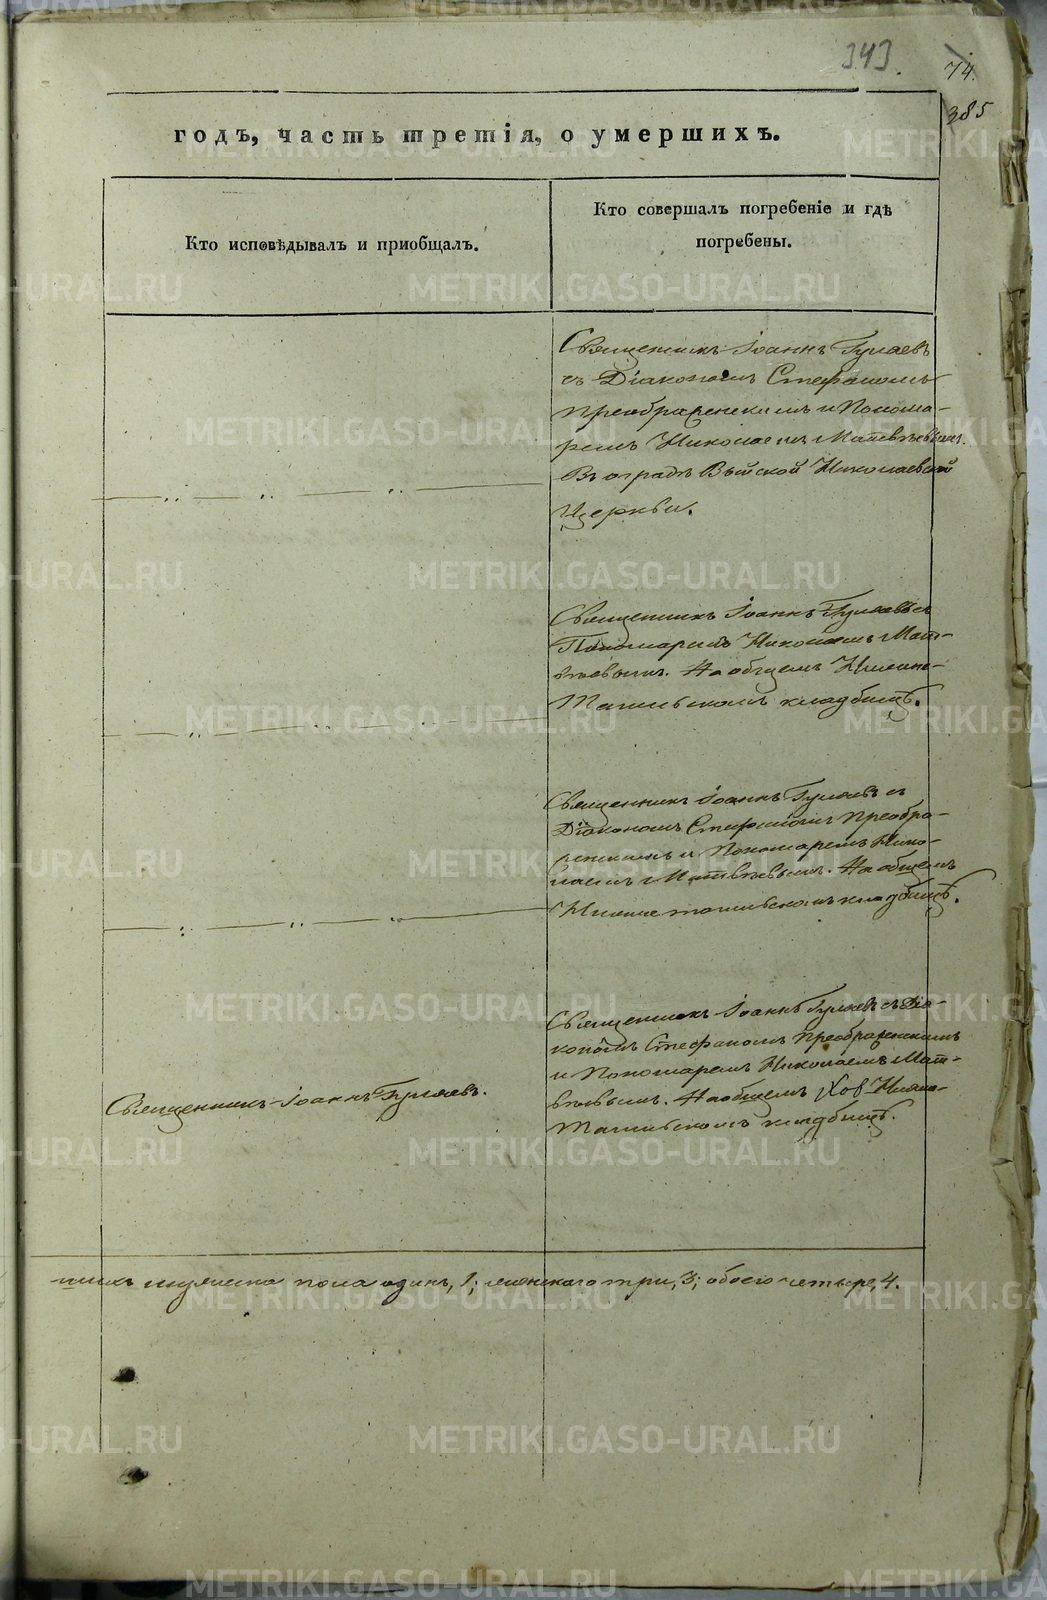 343.
74.
385
годъ, часть третія, о умершихъ.
Кто исповѣдывалъ и пріобщалъ.
Кто совершалъ погребеніе и гдѣ
погребены.
Священникъ Іоаннъ Гуляевъ
съ Діакономъ Стефаномъ
Преображенскимъ и Понома-
ремъ Николаемъ Матвѣевымъ.
Въ оградѣ Выйской Николаевской
Церкви.
Священникъ Іоаннъ Гуляевъ съ
Пономаремъ Николаемъ Мат-
вѣевымъ. На общемъ Нижне-
Тагильскомъ кладбищѣ.
Священникъ Іоаннъ Гуляевъ съ
Діакономъ Стефаномъ Преобра-
женскимъ и Пономаремъ Нико-
лаемъ Матвѣевымъ. На общемъ
Нижнетагильскомъ кладбищѣ.
Священникъ Іоаннъ Гуляевъ.
Священникъ Іоаннъ Гуляевъ съ Діа-
кономъ Стефаномъ Преображенскимъ
и Пономаремъ Николаемъ Мат-
вѣевымъ. На общемъ Нижне-
Тагильскомъ кладбищѣ.
мужеска пола одинъ, 1; женскаго три, 3; обоего четыре, 4.
METRIKI.GASO-URAL.RU